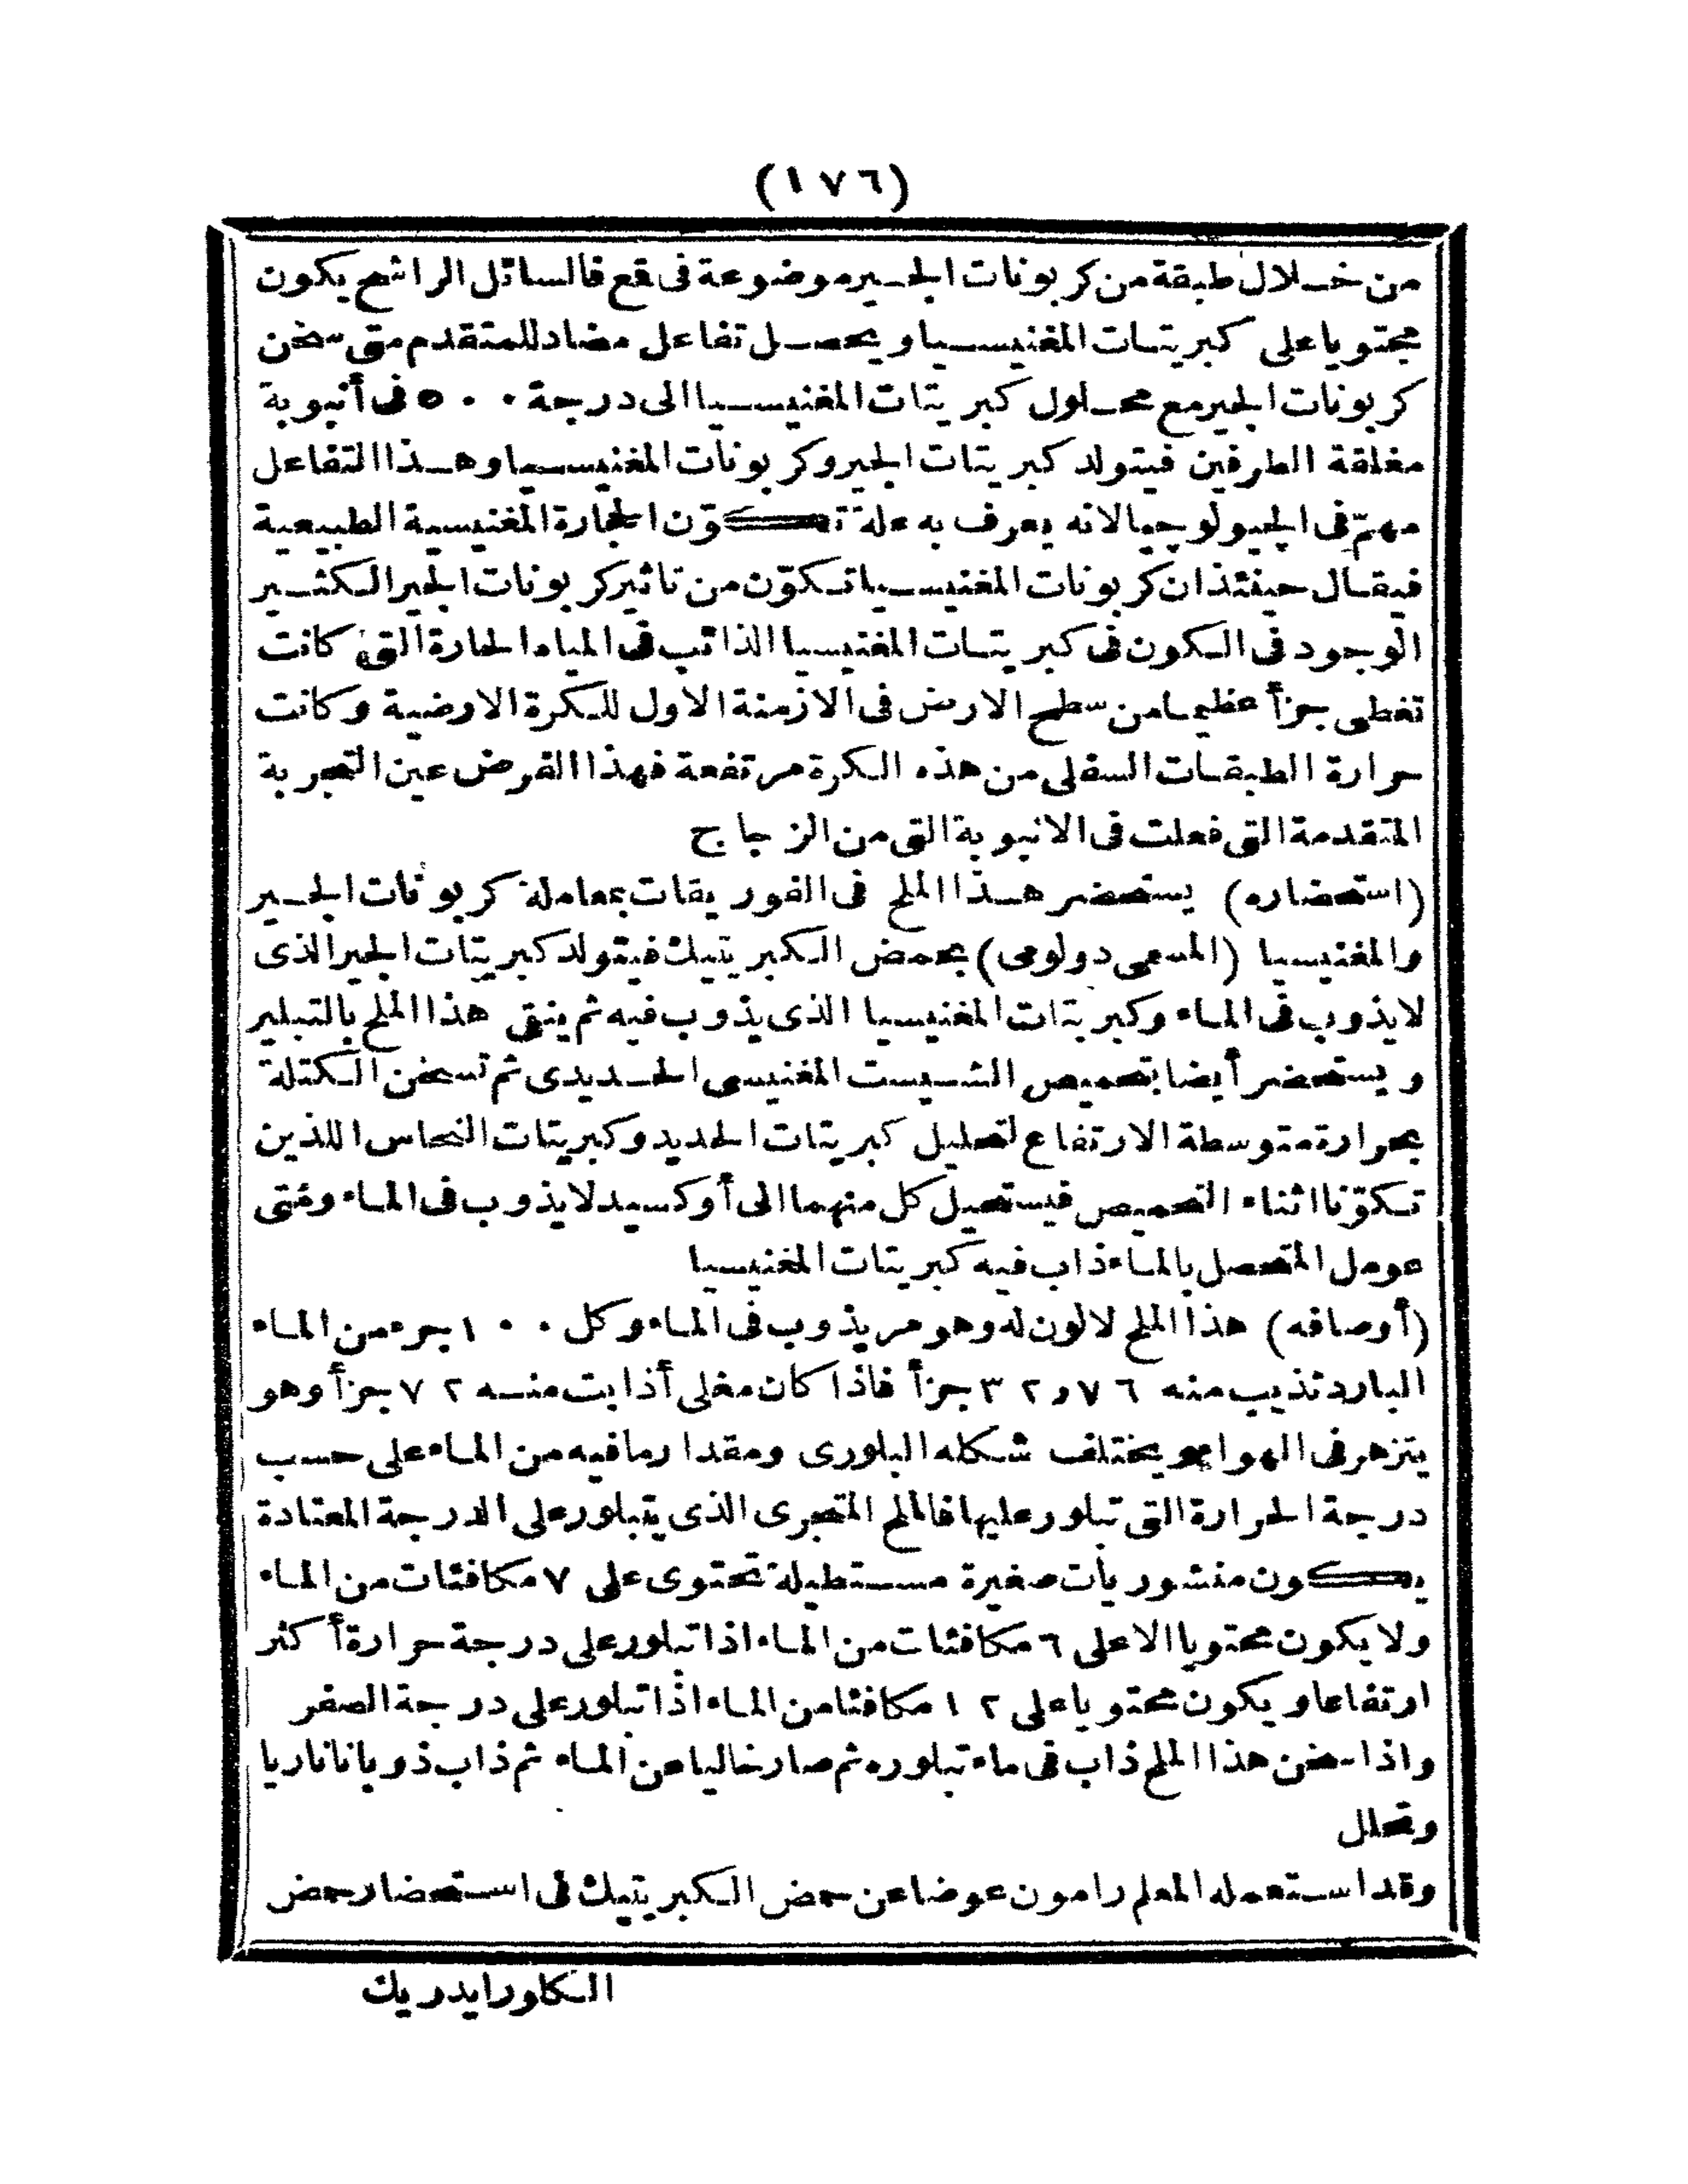 (١٧٦)
من خلال طبقة من كربونات الجير موضوعة فى قمع فالسائل الراشح يكون
محتويا على كبريتات المغنيسيا ويحصل تفاعل مضاد للمتقدم متى سخن
كربونات الجير مع محلول كبريتات المغنيسيا الى درجة ٥٠٠ فى أنبوبة
مغلقة الطرفين فيتولد كبريتات الجير وكربونات المغنيسيا وهذا التفاعل
مهمّ فى الجيولوجيا لانه يعرف به علة تكوّن الحجارة المغنيسية الطبيعية
فيقال حينئذ ان كربونات المغنيسيا تكوّن من تاثير كربونات الجير الكثير
الوجود فى الكون فى كبريتات المغنيسيا الذائب فى المياه الحارة التى كانت
تغطى جزأ عظيما من سطح الارض فى الازمنة الاول للكرة الارضية وكانت
حرارة الطبقات السفلى من هذه الكرة مرتفعة فهذا الفرض عين التجربة
المتقدمة التى فعلت فى الانبوبة التى من الزجاج
(استحضاره) يستحضر هذا الملح فى الفوريقات بمعاملة كربونات الجير
والمغنيسيا (المسمى دولومى) بحمض الكبريتيك فيتولد كبريتات الجير الذى
لا يذوب فى الماء وكبريتات المغنيسيا الذى يذوب فيه ثم ينقى هذا الملح بالتبلير
ويستحضر أيضا بتحميص الشيست المغنيسى الحديدى ثم تسخن الكتلة
بحرارة متوسطة الارتفاع لتحليل كبريتات الحديد وكبريتات النحاس اللذين
تكوّنا اثناء التحميص فيستحيل كل منهما الى أوكسيد لا يذوب فى الماء ومتى
عومل المتحصل بالماء ذاب فيه كبريتات المغنيسيا
(أوصافه) هذا الملح لا لون له وهو مر يذوب فى الماء وكل ١٠٠ جزء من الماء
البارد تذيب منه ٣٢,٧٦ جزأ فاذا كان مغلى أذابت منه ٧٢ جزأ وهو
يتزهر فى الهواء ويختلف شكله البلورى ومقدار ما فيه من الماء على حسب
درجة الحرارة التى تبلور عليها فالملح المتجرى الذى يتبلور على الدرجة المعتادة
يكون منشوريات صغيرة مستطيلة تحتوى على ٧ مكافئات من الماء
ولا يكون محتويا الا على ٦ مكافئات من الماء اذا تبلور على درجة حرارة أكثر
ارتفاعا ويكون محتويا على ١٢ مكافئا من الماء اذا تبلور على درجة الصفر
واذا سخن هذا الملح ذاب فى ماء تبلوره ثم صار خاليا عن الماء ثم ذاب ذوبانا ناريا
وتحلل
وقد استعمله المعلم رامون عوضا عن حمض الكبريتيك فى استحضار حمض
الكاورايدريك